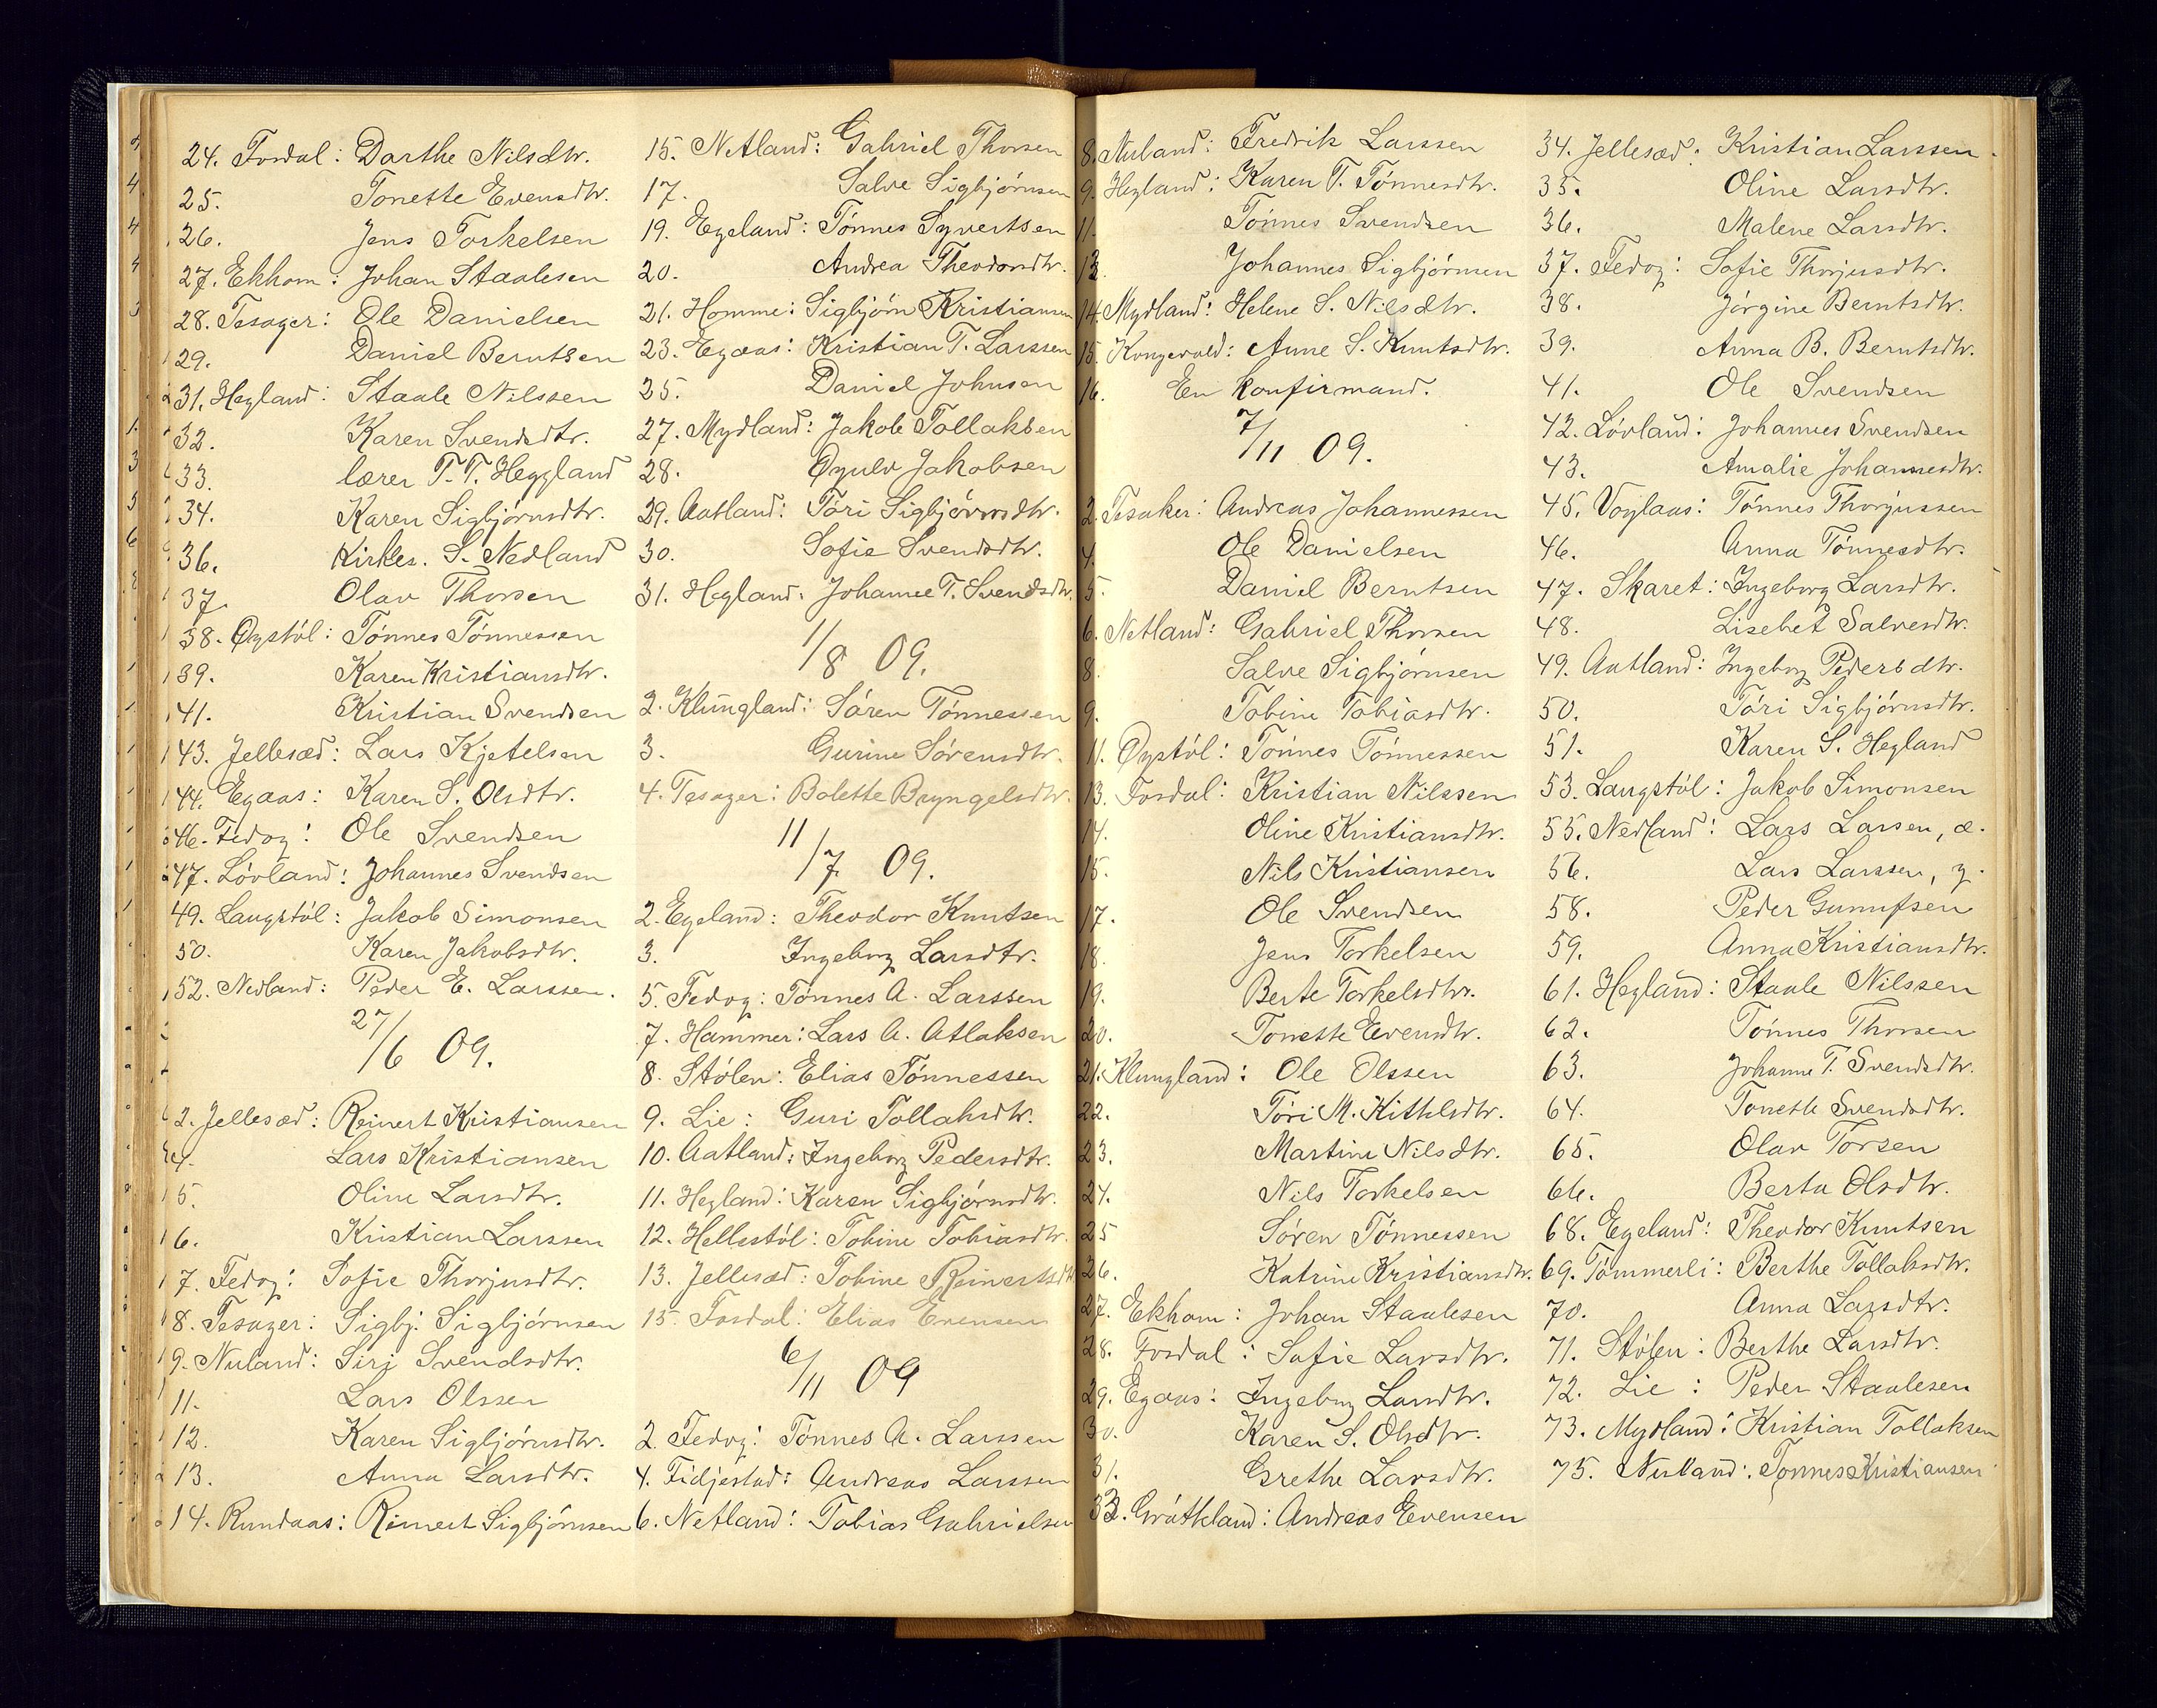 24. Fosdal: Darthe Nilsdtr.
25. Tonette Evensdtr.
26. Jens Torkelsen
27. Ekhom: Johan Staalesen
28. Tesager: Ole Danielsen
29. Daniel Berntsen
31. Hegland: Staale Nilssen
32. Karen Svendsdtr.
33. lærer T. T. Heggland
34. Karen Sigbjørnsdtr.
36. Kirkes. S. Nedland
37. Olav Thorsen
38. Øystøl: Tønnes Tønnessen
39. Karen Kristiansdtr.
41. Kristian Svendsen
43. Jellesæd: Lars Kjetelsen
44. Egaas: Karen S. Olsdtr.
46. Fedog: Ole Svendsen
47. Løvland: Johannes Svendsen
49. Laugstøl: Jakob Simonsen
50. Karen Jakobsdtr.
52. Nedland: Peder E. Larssen.
27/6 09.
2. Jellesæd: Reinert Kristiansen
4. Lars Kristiansen
5. Oline Larsdtr.
6. Kristian Larssen
7. Fedog: Sofie Thorjusdtr.
8. Tesager: Sigbj. Sigbjørnsen
9. Nuland: Sirj Svendsdtr.
11. Lars Olssen
12. Karen Sigbjørnsdtr.
13. Anna Larsdtr.
14. Rundaas: Reinert Sigbjørnsen
15. Netland: Gabriel Thorsen
17. Salve Sigbjørnsen
19. Egeland: Tønnes Syvertsen
20. Andrea Theodorsdtr.
21. Homme: Sigbjørn Kristiansen
23. Egaas: Kristian T. Larssen
25. Daniel Johnsen
27. Mydland: Jakob Tollaksen
28. Øyulv Jakobsen
29. Aatland: Tøri Sigbjørnsdtr.
30. Sofie Svendsdtr.
31. Hegland: Johanne T. Svendsdtr.
1/8 09.
2. Klungland: Søren Tønnessen
3. Gurine Sørensdtr.
4. Tesager: Bolette Bryngelsdtr.
11/7 09.
2. Egeland: Theodor Knutsen
3. Ingeborg Larsdtr.
5. Fedog: Tønnes A. Larssen
7. Hammer: Lars A. Atlaksen
8. Stølen: Elias Tønnessen
9. Lie: Guri Tollaksdtr.
10. Aatland: Ingeborg Pedersdtr.
11. Hegland: Karen Sigbjørnsdtr.
12. Hellestøl: Tobine Tobiasdtr.
13. Jellesæd: Tobine Reinertsdtr
15. Fosdal: Elias Evensen
6/11 09
2. Fedog: Tønnes A. Larssen
4. Fidjestad: Andreas Larssen
6. Netland: Tobias Gabrielsen
8. Nuland: Fredrik Larssen
9. Hegland: Karen T. Tønnesdtr.
11. Tønnes Svendsen
12. Johannes Sigbjørnsen
14. Mydland: Helene S. Nilsdtr.
15. Kongevold: Anne S. Knutsdtr.
16. En konfirmand.
7/11 09.
2. Tesaker: Andreas Johannessen
4. Ole Danielsen
5. Daniel Berntsen
6. Netland: Gabriel Thorsen
8. Salve Sigbjørnsen
9. Tobine Tobiasdtr.
11. Øystøl: Tønnes Tønnessen
13. Fosdal: Kristian Nilssen
14. Oline Kristiansdtr.
15. Nils Kristiansen
17. Ole Svendsen
18. Jens Torkelsen
19. Berte Torkelsdtr.
20. Tonette Evensdtr.
21. Klungland: Ole Olssen
22. Tøri M. Kittelsdtr.
23. Martine Nilsdtr.
24. Nils Torkelsen
25 Søren Tønnessen
26. Katrine Kristiansdtr.
27. Ekhom: Johan Staalesen
28. Fosdal: Sofie Larsdtr.
29. Egaas: Ingeborg Larsdtr.
30. Karen S. Olsdtr.
31. Grethe Larsdtr.
33. Grøtteland: Andreas Evensen
34. Jellesæd: Kristian Larssen.
35. Oline Larsdtr.
36. Malene Larsdtr.
37. Fedog: Sofie Thorjusdtr.
38. Jørgine Berntsdtr.
39. Anna B. Berntsdtr.
41. Ole Svendsen
42. Løvland: Johannes Svendsen
43. Amalie Johannesdtr.
45. Voglaas: Tønnes Thorjussen
46. Anna Tønnesdtr.
47. Skaret: Ingeborg Larsdtr.
48. Lisebet Salvesdtr.
49. Aatland: Ingeborg Pedersdtr.
50. Tøri Sigbjørnsdtr.
51. Karen S. Hegland
53. Laugstøl: Jakob Simonsen
55. Nedland: Lars Larsen, æ.
56. Lars Larssen, y.
58. Peder Gunufsen
59. Anna Kristiansdtr.
61. Hegland: Staale Nilssen
62. Tønnes Thorsen
63. Johanne T. Svendsdtr.
64. Tonette Svendsdtr.
65. Olav Torsen
66. Berta Olsdtr.
68. Egeland: Theodor Knutsen
69. Tømmerli: Berthe Tollaksdtr.
70. Anna Larsdtr.
71. Stølen: Berthe Larsdtr.
72. Lie: Peder Staalesen
73. Mydland: Kristian Tollaksen
75. Nuland: Tønnes Kristiansen